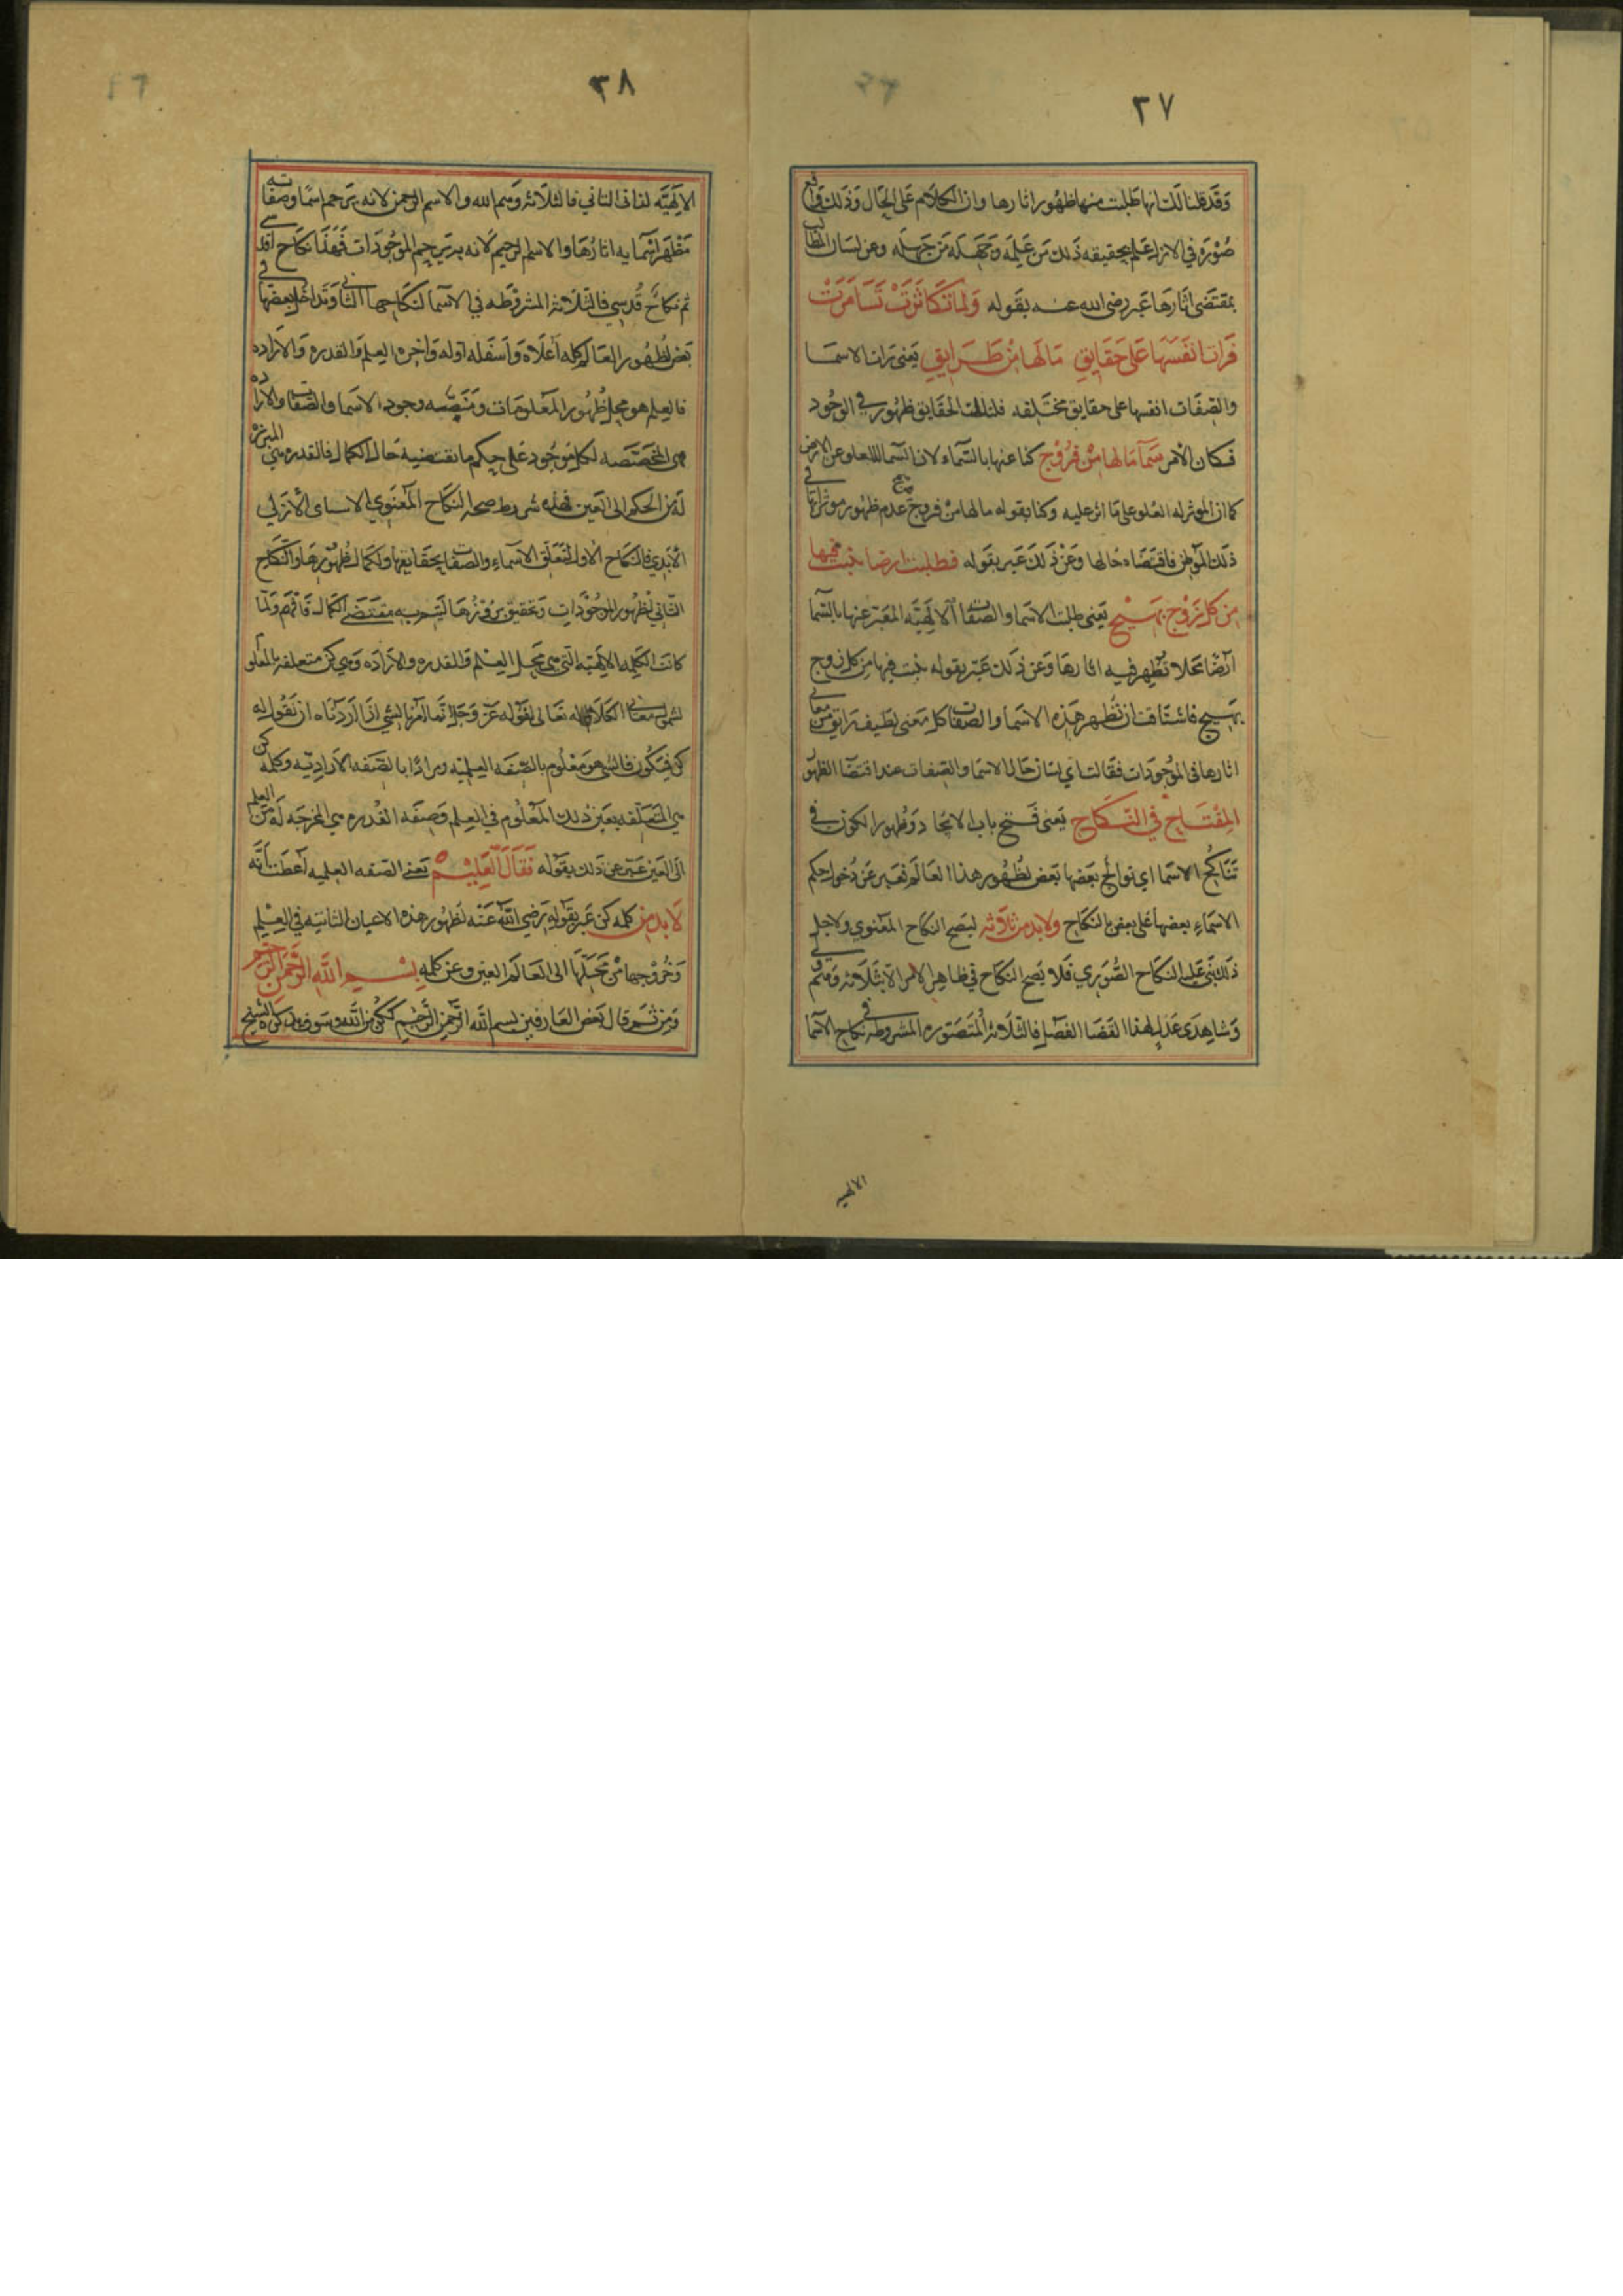 ٣٧
وقد قلنا لك انها طلبت منها ظهور اثارها وان الكلام على الحال وذلك واقع
صورة في الازل علم بحقيقه ذلك من علمه وجهله من جهله وعن لسان الطالب
بمقتضى اثارها عبر رضي الله عنه بقوله ولما تكاثرت تسامرت
فرات انفسها على حقايق مالها من طرايق يعني رات الاسما
والصفات انفسها على حقايق مختلفه فلتلك الحقايق ظهور في الوجود
فكان الامر سما مالها من فروج كنا عنها بالسماء لان السما للعلو عن الارض
كما ان الموثر له العلو على ما اثر عليه وكنا بقوله مالها من فروج عدم ظهور موثراتها في
ذلك الموطن فاقتضاه حالها وعن ذلك عبر بقوله فطلبت ارضا ينبت فيها
من كل زوج بهيج يعني طلبت الاسما والصفات الالهيه المعبر عنها بالسما
ارضا محلا تظهر فيه اثارها وعن ذلك عبر بقوله ينبت فيها من كل زوج
بهيج فاشتاقت ان تظهر هذه الاسما والصفات كل معنى لطيف رايق من معاني
اثارها في الموجودات فقالت اي لسان حال الاسما والصفات عند اقتضا الظهور
المفتاح في النكاح يعني فتح باب الايجاد وظهور الكون في
تناكح الاسما اي توالج بعضها بعض لظهور هذا العالم فعبر عن دخول حكم
الاسماء بعضها على بعض بالنكاح ولا بد من ثلاثه ليصح النكاح المعنوي ولاجل
ذلك بني عليه النكاح الصوري فلا يصح النكاح في ظاهر الامر الا بثلاثه وهم ولي
وشاهدي عدل لهذا القضا الفصل فالثلاثه المتصوره المشروطه في نكاح الاسما
الالهيه
٣٨
الالهيه لذاتها الثاني فالثلاثه وهم الله والاسم الرحمن لانه يرحم اسما وصفاته
مظهر اسمايه اثارها والاسم الرحيم لانه به يرحم الموجودات فهذا نكاح اقدسي
ثم نكاح قدسي فالثلاثه المشروطه في الاسما لنكاحها الثاني وتداخل بعضها في
بعض لظهور العالم كله اعلاه واسفله اوله واخره العلم والقدره والاراده
فالعلم هو محل ظهور المعلومات ومنصه وجود الاسما والصفات والاراده
هي المخصصه لكل موجود على حكم ما تقتضيه حال الكمال فالقدره هي المبرزه
له من الحكم الى العين فهذه شروط صحه النكاح المعنوي الاسماي الازلي
الابدي فالنكاح الاول لتعلق الاسماء والصفات بحقايقها ولكمال ظهورها والنكاح
الثاني لظهور الموجودات وتحقيق بروزها ليتم به مقتضى الكمال فافهم ولما
كانت الكلمه الالهيه التي هي محل العلم والقدره والاراده وهي كن متعلقه بالمعلوم
لشمول معنى الكلام له تعالى لقوله عز وجل انما امرنا لشي اذا اردناه ان نقول له
كن فيكون فالشي هو معلوم بالصفه العلميه ومرادا بالصفه الاراديه وكلمه كن
هي المتعلقه بعين ذلك المعلوم في العلم وصفه القدره هي المخرجه له من العلم
الى العين عبر عن ذلك بقوله فقال العليم يعني الصفه العلميه اعطت بانه
لا بد من كلمه كن عبر بقوله رضي الله عنه لظهور هذه الاعيان الثابته في العلم
وخروجها من محلها الى العالم العيني وعن كلمه بسم الله الرحمن الرحيم
ومن ثم قال بعض العارفين بسم الله الرحمن الرحيم ككن من الله وسوف يذكره الشيخ